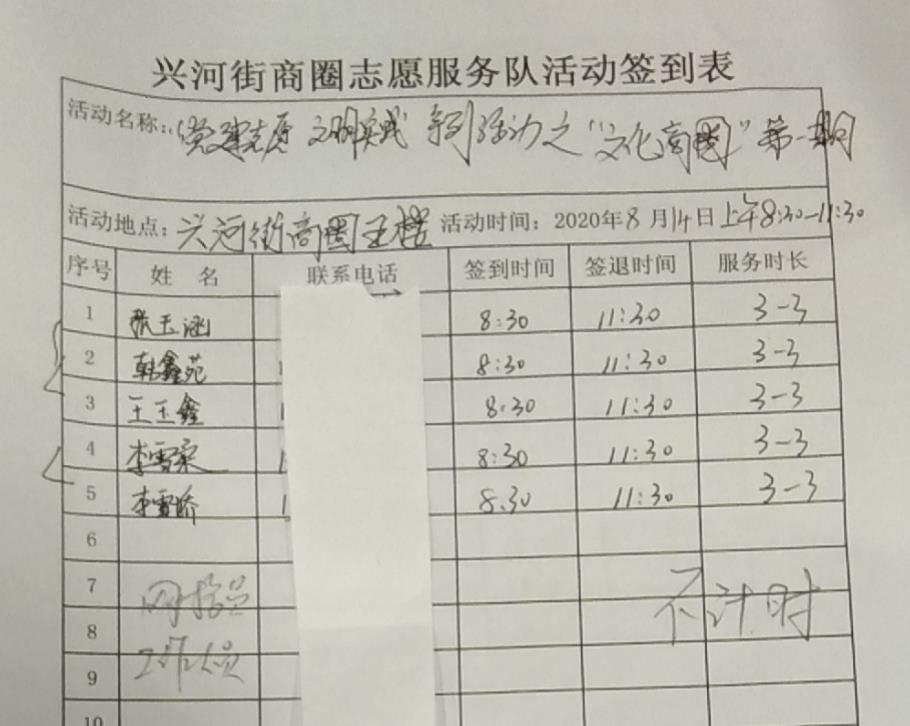 兴河街商圈志愿服务队活动签到表
活动名称:党建志愿 文明实践 系列活动之“文化商圈”第一期
活动地点:兴河街商圈主楼 活动时间:2020年8月14日上午8:30-11:30
序号 姓 名 联系电话 签到时间 签退时间 服务时长
1 张玉涵 8:30 11:30 3-3
2 韩鑫苑 8:30 11:30 3-3
3 王玉鑫 8:30 11:30 3-3
4 李雪 8:30 11:30 3-3
5 李雪娇 8:30 11:30 3-3
6
7 网格员 不计时
8
9 工作人员
10